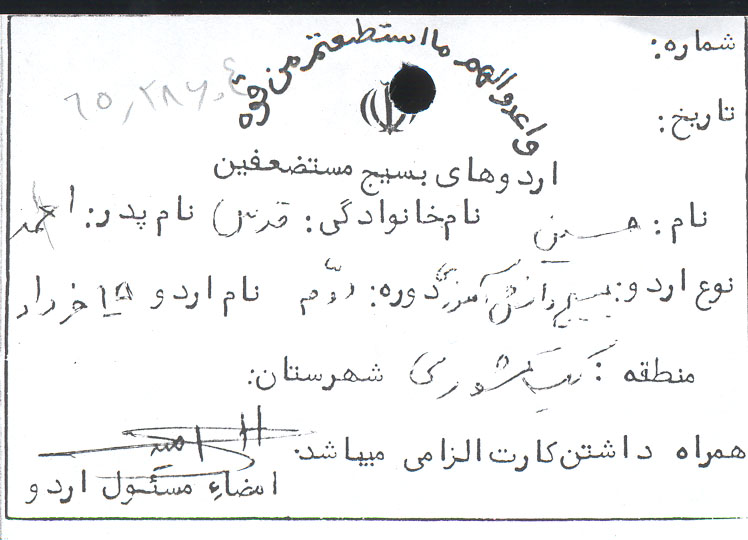 واعدوا لهم ما استطعتم من قوه
شماره:
تاریخ:
اردوهای بسیج مستضعفین
نام: حسین نام خانوادگی: قدس نام پدر: احمد
نوع اردو: بسیج دانش آموزی دوره: دوم نام اردو ۱۵ خرداد
منطقه: شهرستان:
همراه داشتن کارت الزامی میباشد.
امضاء مسئول اردو